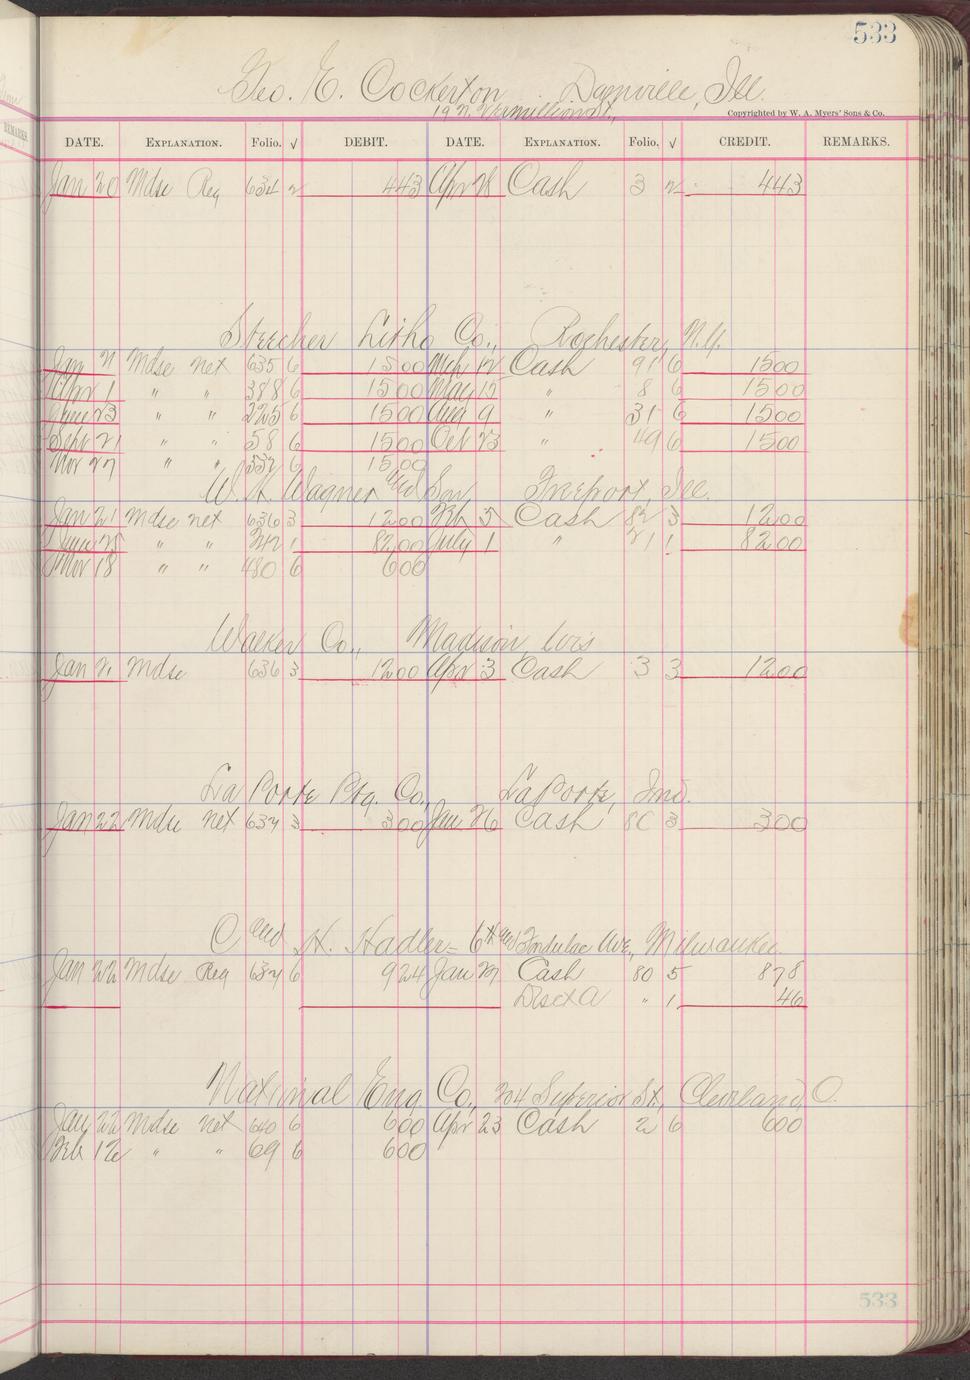 533
Geo. E. Cockerton Danville, Ill.
19 N. Vermillion St.,
Copyrighted by W. A. Myers' Sons & Co.
REMARKS.
DATE. EXPLANATION. Folio. √ DEBIT. DATE. EXPLANATION. Folio. √ CREDIT. REMARKS.
Jan 20 Mdse Reg 634 2 443 Apr 28 Cash 3 2 443
Stecher Litho Co., Rochester, N.Y.
Jan 21 Mdse net 635 6 1500 Mch 12 Cash 91 6 1500
Apr 1 " " 388 6 1500 May 15 " 8 6 1500
23 " " 225 6 1500 Aug 9 " 31 6 1500
Sept 21 " " 58 6 1500 Oct 23 " 49 6 1500
Nov 27 " " 532 6 1500
W. H. Wagner and Son, Freeport, Ill.
Jan 21 Mdse net 636 3 1200 Feb 5 Cash 82 3 1200
" " 242 1 8200 July 1 " 21 1 8200
Nov 18 " " 480 6 600
Walker Co., Madison, Wis
Jan 21 Mdse 636 3 1200 Apr 3 Cash 3 3 1200
La Porte Ptg. Co., LaPorte, Ind.
Jan 22 Mdse net 637 3 300 Jan 26 Cash 80 3 300
C and H. Hadler= 6th and Fondulac Ave., Milwaukee.
Jan 22 Mdse Reg 637 6 924 Jan 27 Cash 80 5 878
" 1 46
National Eng Co., 204 Superior St, Cleveland, O.
Jan 22 Mdse net 640 6 600 Apr 23 Cash 2 6 600
Feb 12 " " 69 6 600
533